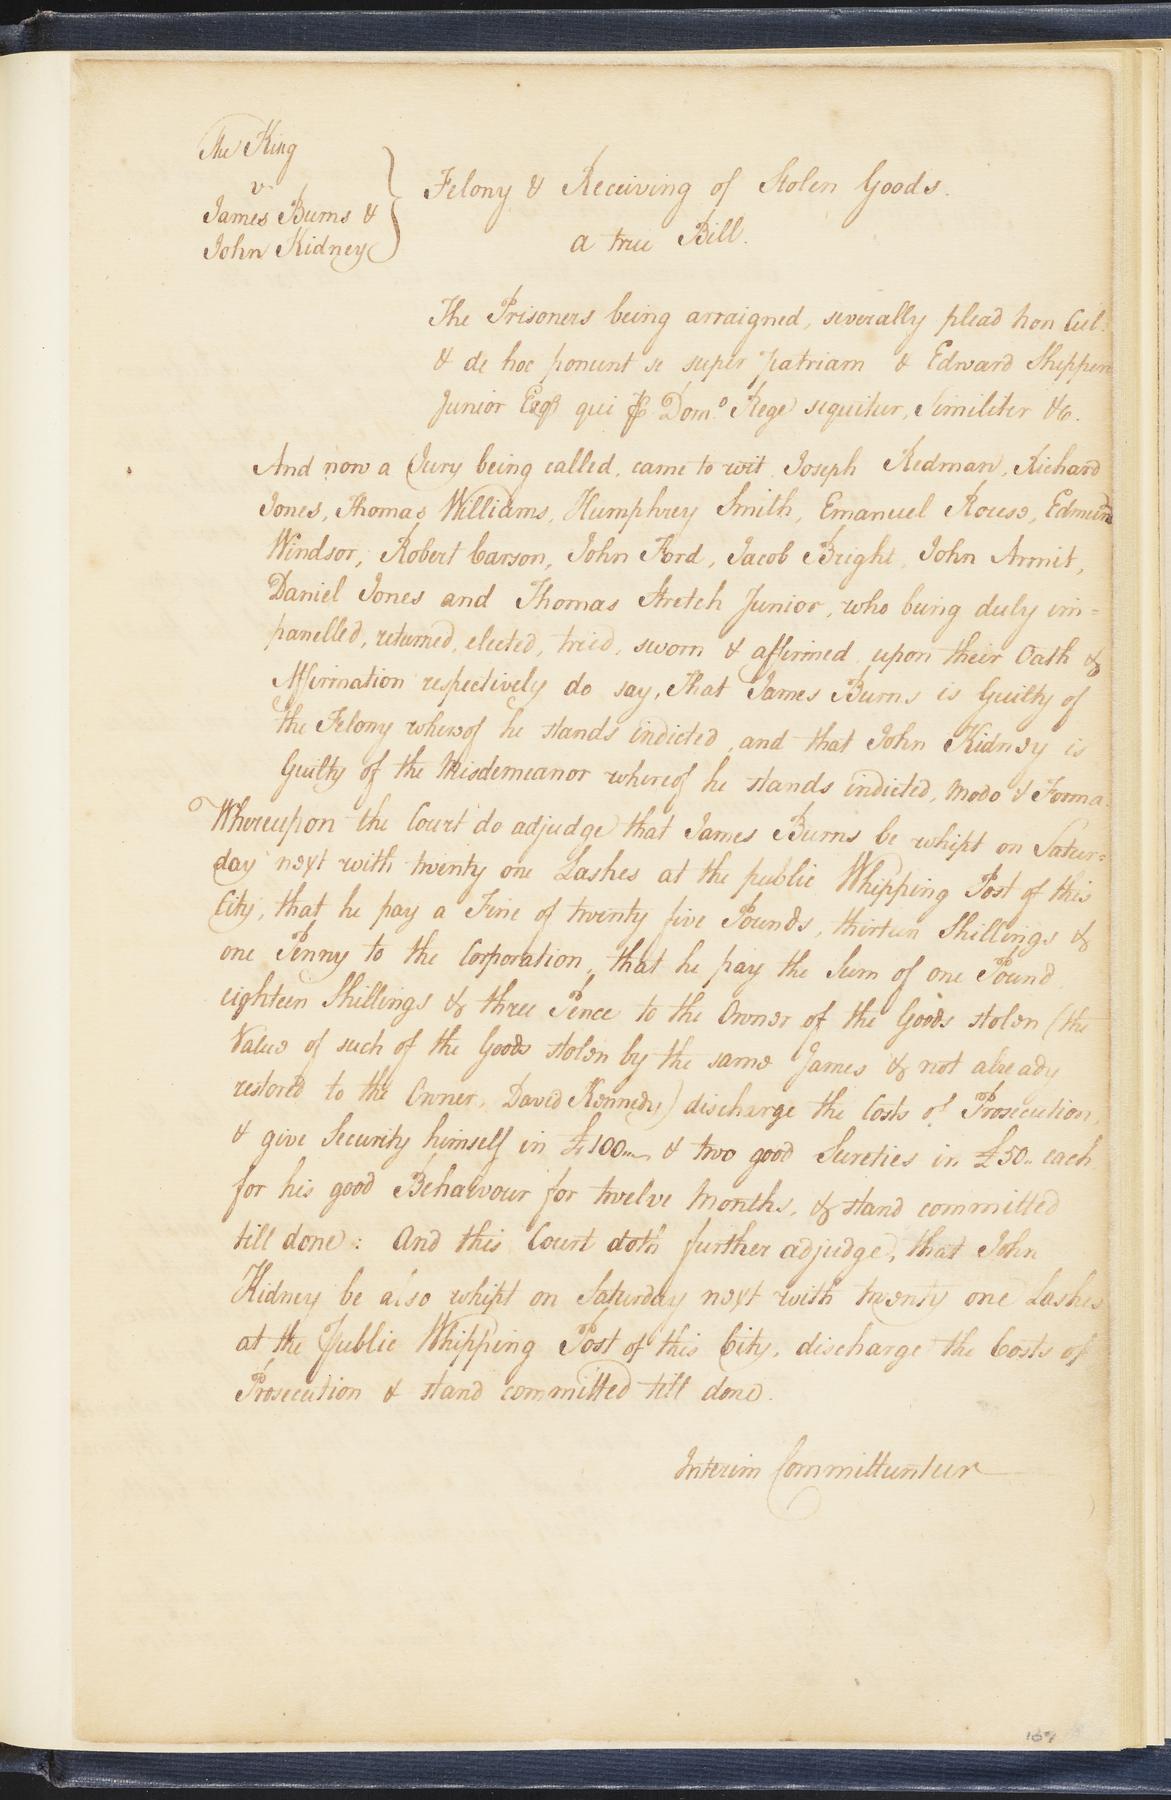 The King
v.
James Burns &
John Kidney
Felony & Receiving of Stolen Goods.
a true Bill.
The Prisoners being arraigned, severally plead non Cul.
& de hoc ponunt se super patriam & Edward Shippen
Junior Esqr qui p Domo. Rege sequitur, Similiter &c.
And now a Jury being called, came to wit, Joseph Redman, Richard
Jones, Thomas Williams, Humphrey Smith, Emanuel Rouse, Edmund
Windsor, Robert Carson, John Ford, Jacob Bright, John Armit,
Daniel Jones and Thomas Stretch Junior, who being duly im=
panelled, returned, elected, tried, sworn & affirmed upon their Oath &
Affirmation respectively do say, That James Burns is Guilty of
the Felony whereof he stands indicted, and that John Kidney is
Guilty of the Misdemeanor whereof he stands indicted, Modo & Forma.
Whereupon the Court do adjudge that James Burns be whipt on Satur=
day next with twenty one Lashes at the public Whipping Post of this
City, that he pay a Fine of twenty five Pounds, thirteen Shillings &
one Penny to the Corporation, that he pay the Sum of one Pound
eighteen Shillings & three Pence to the Owner of the Goods stolen (the
Value of such of the Goods stolen by the same James & not already
restored to the Owner, David Kennedy) discharge the Costs of Prosecution,
& give Security himself in £100.. & two good Sureties in £50.. each
for his good Behaivour for twelve Months, & stand committed
till done: And this Court doth further adjudge, that John
Kidney be also whipt on Saturday next with twenty one Lashes
at the Public Whipping Post of this City, discharge the Costs of
Prosecution & stand committed till done.
Interim Committuntur
167